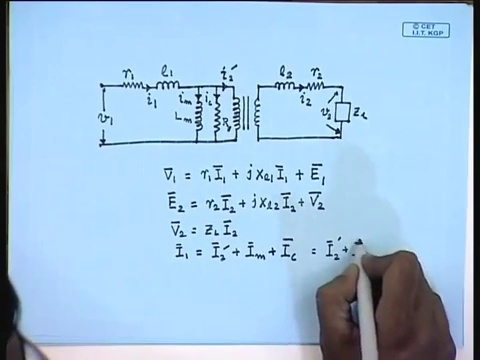 © CET
I.I.T. KGP
r₁ l₁ i₂′ l₂ r₂
i₁ iₘ i꜀ i₂
v₁ Lₘ v₂ Z_L
V̄₁ = r₁Ī₁ + jx_{l1}Ī₁ + Ē₁
Ē₂ = r₂Ī₂ + jx_{l2}Ī₂ + V̄₂
V̄₂ = Z_L Ī₂
Ī₁ = Ī₂′ + Īₘ + Ī_c = Ī₂′ +